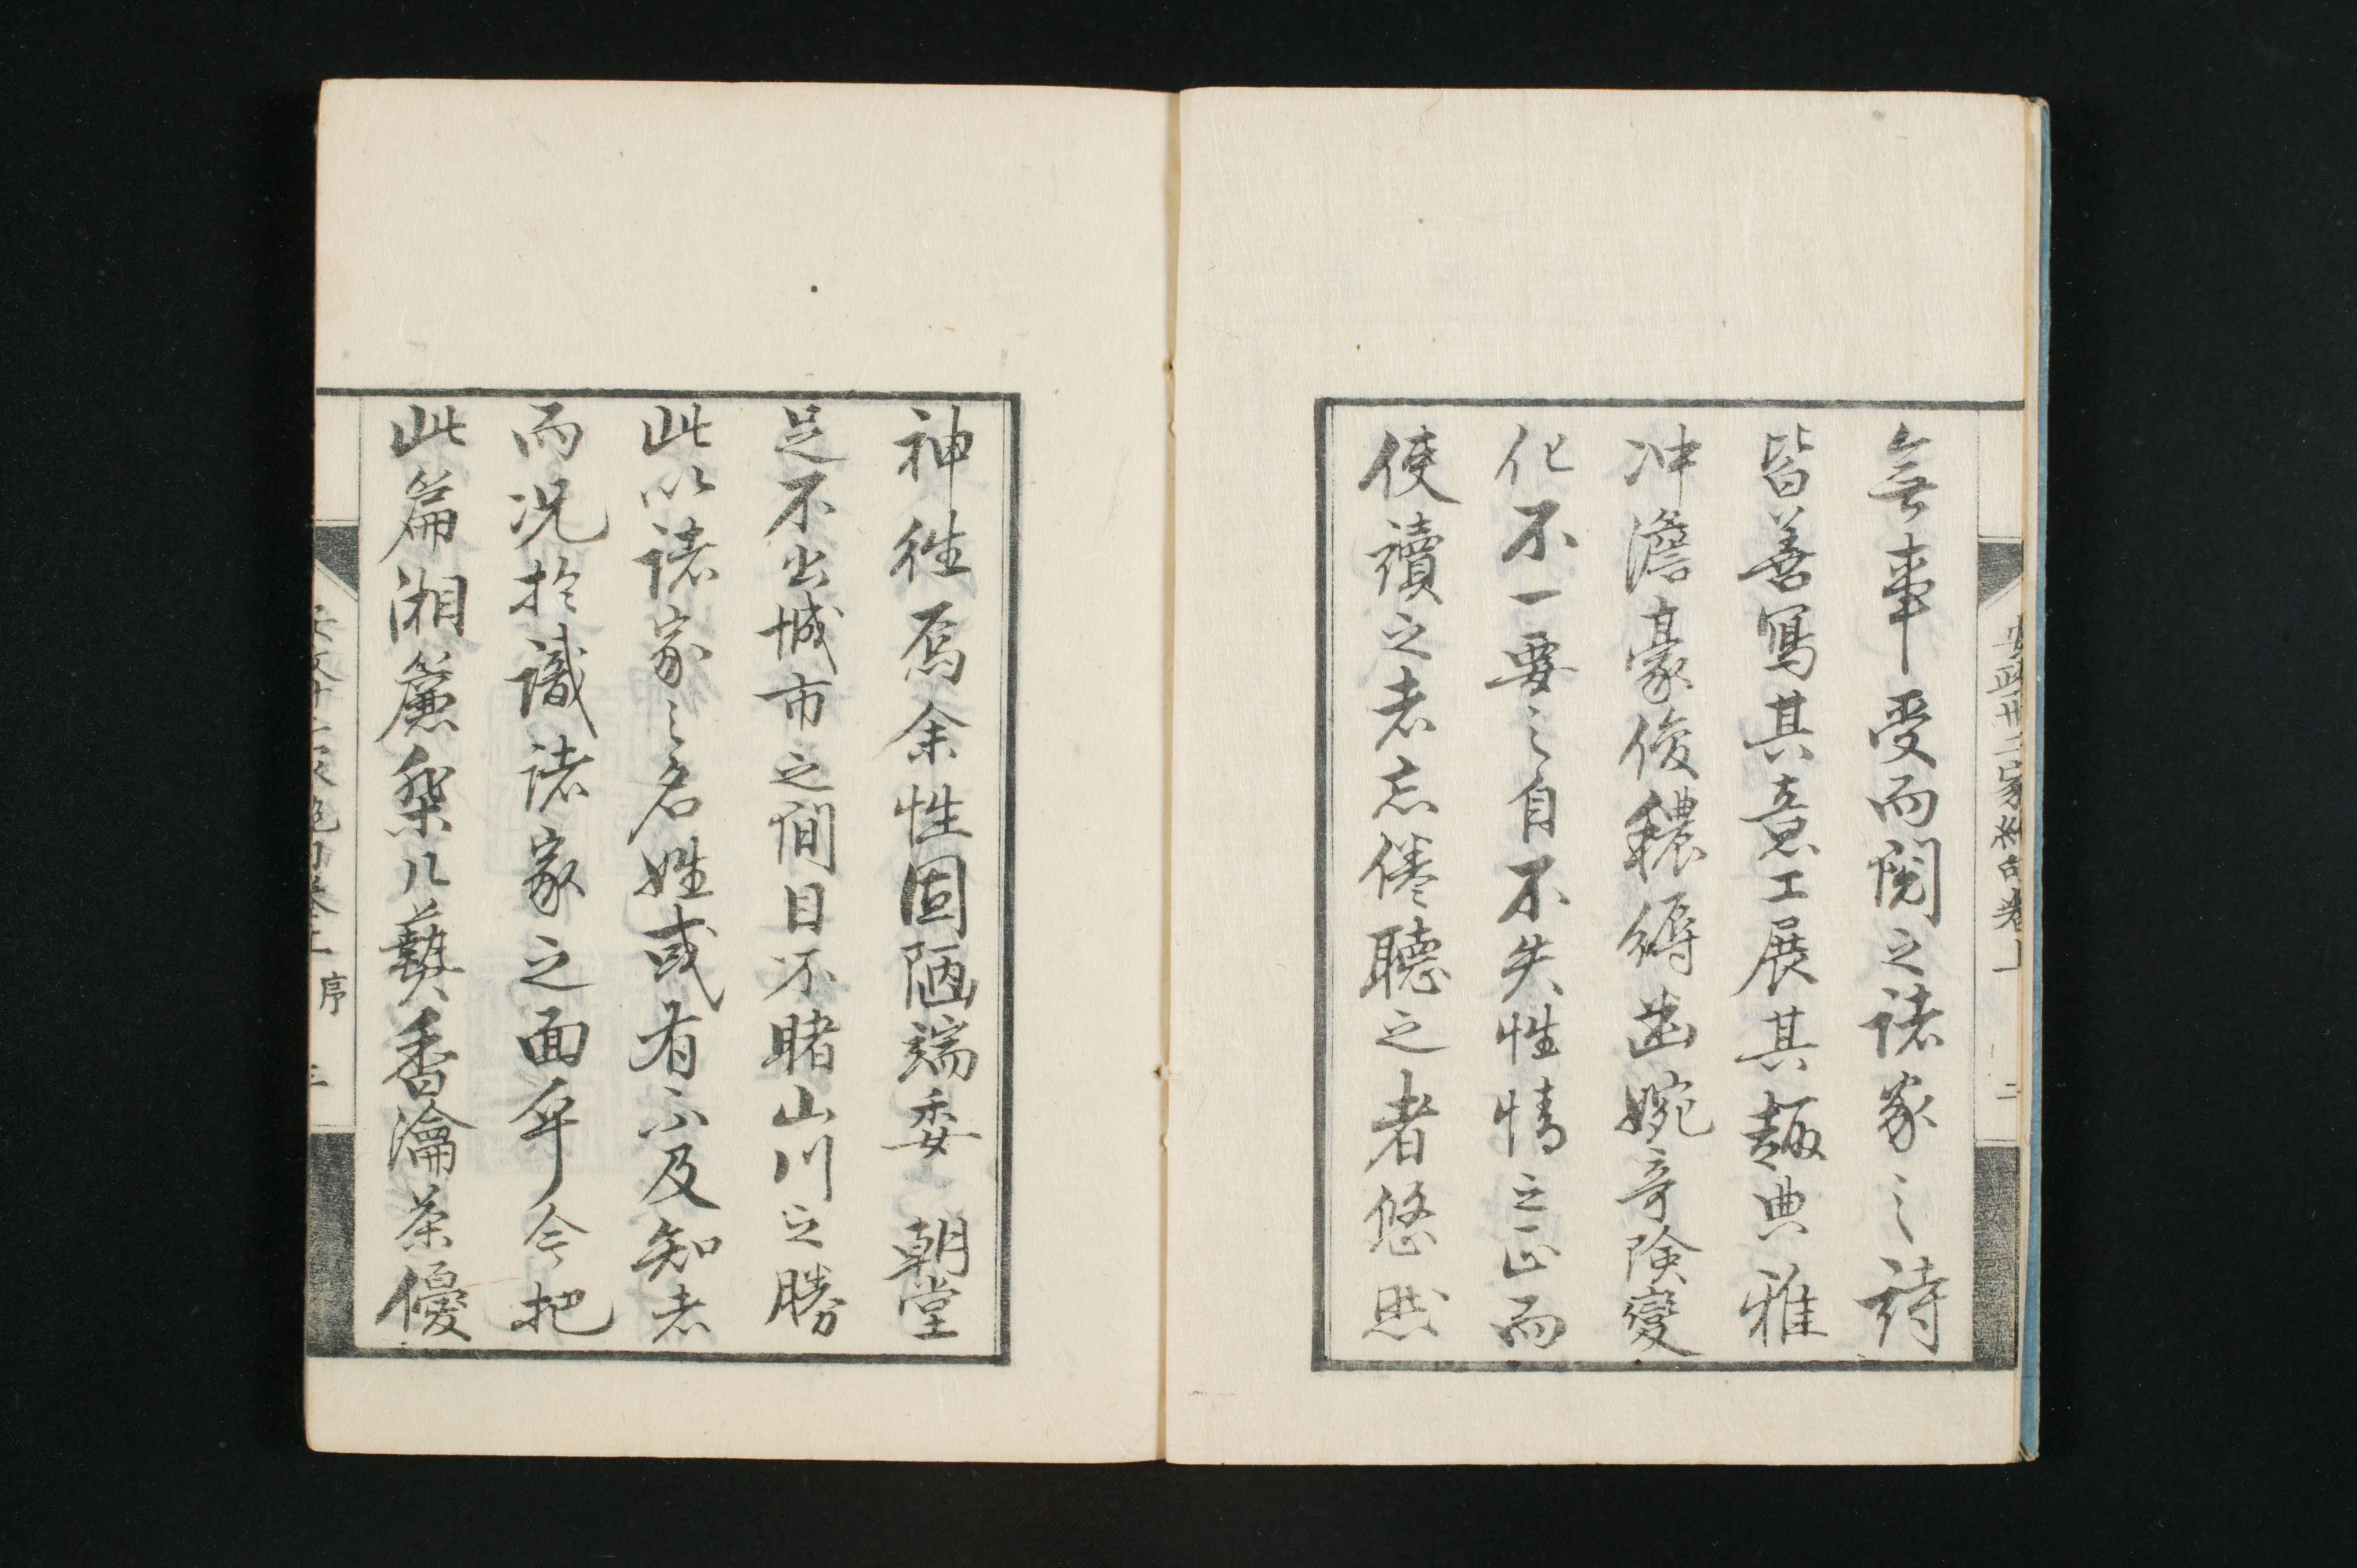 安政卅二家絶句卷上 二
無事受而閲之諸家之詩
皆善寫其意工展其趣典雅
冲澹豪俊穠縟幽婉奇険變
化不一要之自不失性情之正而
使讀之者忘倦聽之者悠然
神往焉余性固陋端委 朝堂
足不出城市之間目不睹山川之勝
此以諸家之名姓或有不及知者
而况於識諸家之面乎今把
此篇湘簾棐几爇香瀹茶優
序 三